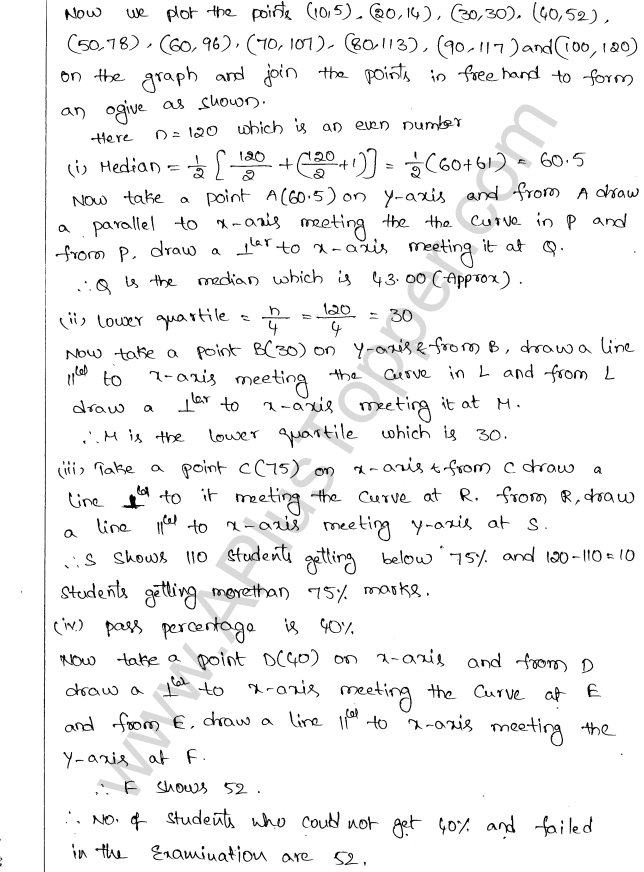 Now we plot the points (10,5), (20,14), (30,30), (40,52),
(50,78), (60,96), (70,107), (80,113), (90,117) and (100,120)
on the graph and join the points in free hand to form
an ogive as shown.
Here n = 120 which is an even number
(i) Median = 1/2 [120/2 + (120/2 + 1)] = 1/2 (60+61) = 60.5
Now take a point A(60.5) on y-axis and from A draw
a parallel to x-axis meeting the the curve in P and
from P, draw a ⊥lar to x-axis meeting it at Q.
∴ Q is the median which is 43.00 (Approx).
(ii) lower quartile = n/4 = 120/4 = 30
Now take a point B(30) on y-axis & from B, draw a line
||lel to x-axis meeting the curve in L and from L
draw a ⊥lar to x-axis meeting it at M.
∴ M is the lower quartile which is 30.
(iii) Take a point C(75) on x-axis & from C draw a
line ⊥lar to it meeting the curve at R. from R, draw
a line ||lel to x-axis meeting y-axis at S.
∴ S shows 110 students getting below 75% and 120-110=10
students getting morethan 75% marks.
(iv) pass percentage is 40%
Now take a point D(40) on x-axis and from D
draw a ⊥lar to x-axis meeting the curve at E
and from E, draw a line ||lel to x-axis meeting the
y-axis at F.
∴ F shows 52.
∴ No. of students who could not get 40% and failed
in the Examination are 52.
www.APlusTopper.com